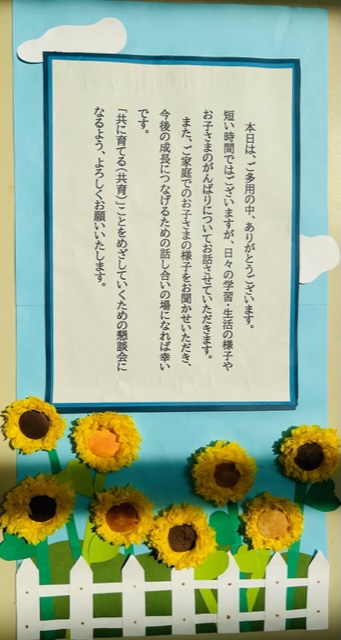 本日は、ご多用の中、ありがとうございます。
短い時間ではございますが、日々の学習・生活の様子や
お子さまのがんばりについてお話させていただきます。
また、ご家庭でのお子さまの様子をお聞かせいただき、
今後の成長につなげるための話し合いの場になれば幸い
です。
「共に育てる（共育）」ことをめざしていくための懇談会に
なるよう、よろしくお願いいたします。